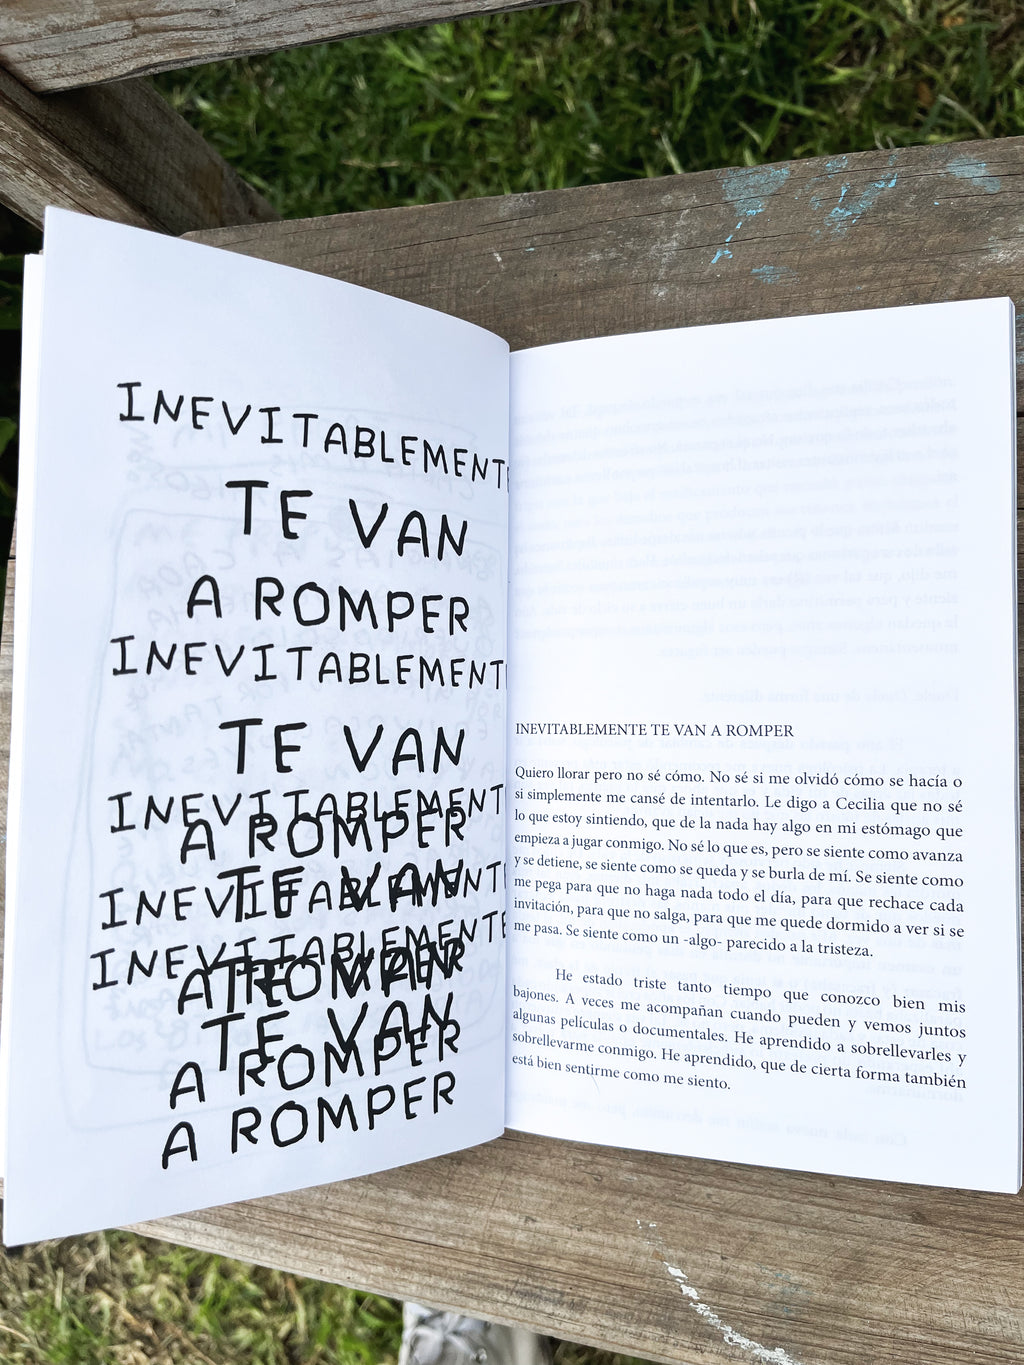 INEVITABLEMENTE
TE VAN
A ROMPER
INEVITABLEMENTE
TE VAN
INEVITABLEMENTE
A ROMPER
TE VAN
INEVITABLEMENTE
INEVITABLEMENTE
TE VAN
A ROMPER
TE VAN
A ROMPER
A ROMPER
INEVITABLEMENTE TE VAN A ROMPER
Quiero llorar pero no sé cómo. No sé si me olvidó cómo se hacía o
si simplemente me cansé de intentarlo. Le digo a Cecilia que no sé
lo que estoy sintiendo, que de la nada hay algo en mi estómago que
empieza a jugar conmigo. No sé lo que es, pero se siente como avanza
y se detiene, se siente como se queda y se burla de mí. Se siente como
me pega para que no haga nada todo el día, para que rechace cada
invitación, para que no salga, para que me quede dormido a ver si se
me pasa. Se siente como un -algo- parecido a la tristeza.
He estado triste tanto tiempo que conozco bien mis
bajones. A veces me acompañan cuando pueden y vemos juntos
algunas películas o documentales. He aprendido a sobrellevarles y
sobrellevarme conmigo. He aprendido, que de cierta forma también
está bien sentirme como me siento.